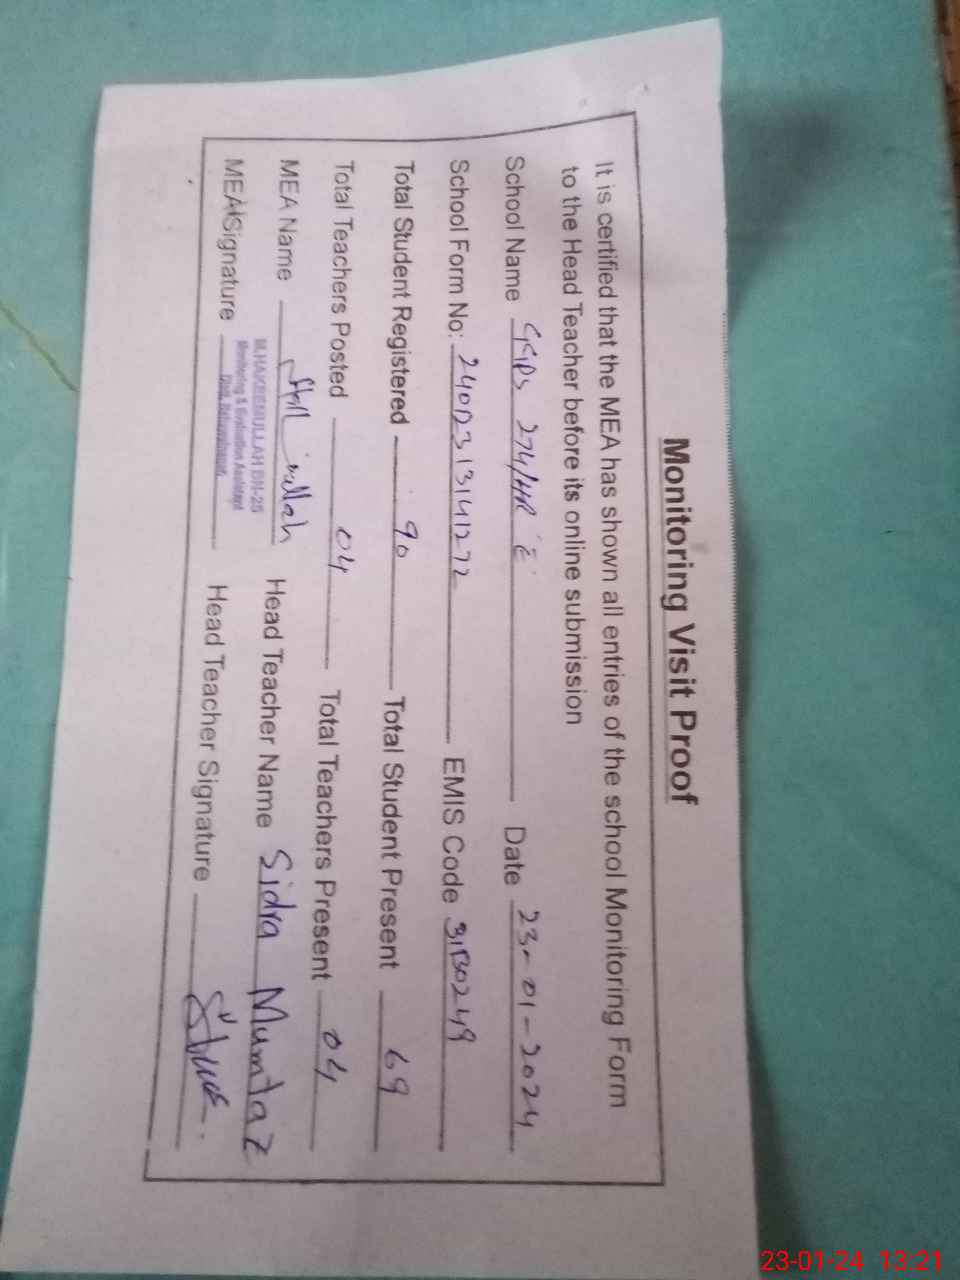 Monitoring Visit Proof
It is certified that the MEA has shown all entries of the school Monitoring Form
to the Head Teacher before its online submission
School Name GGPS 274/HR 'E' Date 23-01-2024
School Form No: 240123131141272 EMIS Code 31130249
Total Student Registered 90 Total Student Present 69
Total Teachers Posted 04 Total Teachers Present 04
MEA Name Head Teacher Name Sidra Mumtaz
M.HAKEEMULLAH BN-25
Monitoring & Evaluation Assistant
Distt. Bahawalnagar
MEA Signature Head Teacher Signature
23-01-24 13:21